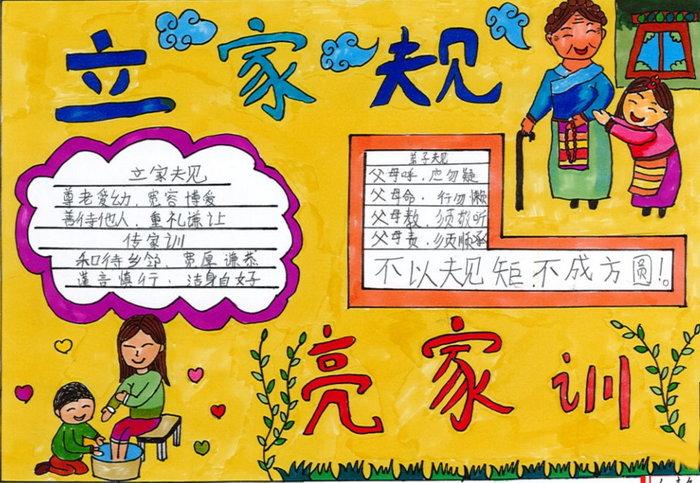 立家规
立家规
尊老爱幼、宽容博爱
善待他人、重礼谦让
传家训
和待乡邻、宽厚谦恭
谨言慎行、洁身自好
弟子规
父母呼、应勿疑
父母命、行勿懒
父母教、须敬听
父母责、须顺承
不以规矩、不成方圆!
亮家训